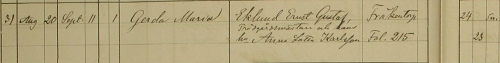 31 Aug 20 Sept. 11 1 Gerda Maria Eklund Ernst Gustaf, 24
Trädgårdsmästare och hans
hu Anna Lotta Karlsson Fol. 215 23